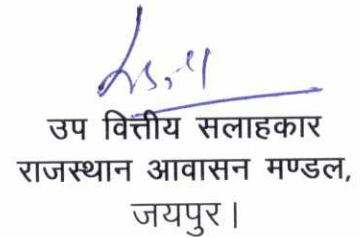 उप वित्तीय सलाहकार
राजस्थान आवासन मण्डल,
जयपुर।